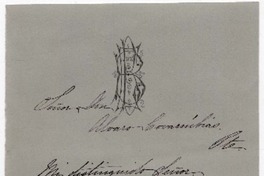 Señor Don
Alvaro Covarrúbias.
Pte.
Mi distinguido Señor